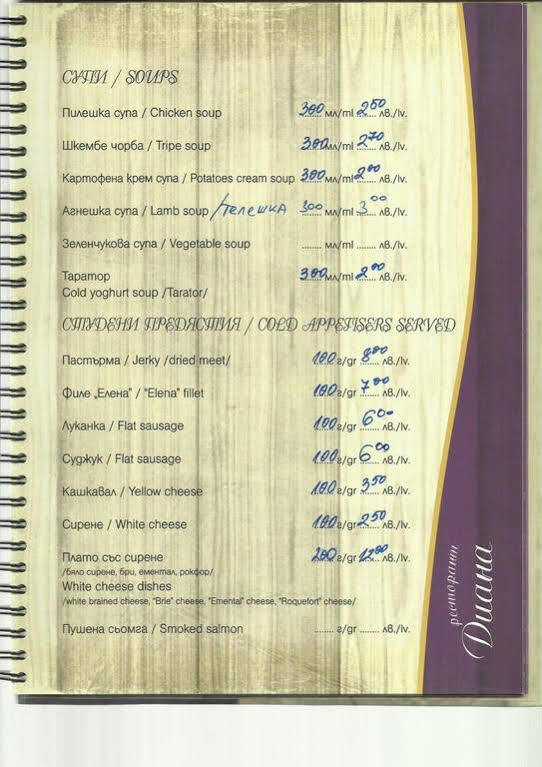 СУПИ / SOUPS
Пилешка супа / Chicken soup 300 мл/ml 2 50 лв./lv.
Шкембе чорба / Tripe soup 300 мл/ml 2 70 лв./lv.
Картофена крем супа / Potatoes cream soup 300 мл/ml 2 00 лв./lv.
Агнешка супа / Lamb soup /телешка 300 мл/ml 3 00 лв./lv.
Зеленчукова супа / Vegetable soup ....... мл/ml ....... лв./lv.
Таратор 300 мл/ml 2 00 лв./lv.
Cold yoghurt soup /Tarator/
СТУДЕНИ ПРЕДЯСТИЯ / COLD APPETISERS SERVED
Пастърма / Jerky /dried meet/ 100 г/gr 8 00 лв./lv.
Филе „Елена" / "Elena" fillet 100 г/gr 7 00 лв./lv.
Луканка / Flat sausage 100 г/gr 6 00 лв./lv.
Суджук / Flat sausage 100 г/gr 6 00 лв./lv.
Кашкавал / Yellow cheese 100 г/gr 3 50 лв./lv.
Сирене / White cheese 100 г/gr 2 50 лв./lv.
Плато със сирене 200 г/gr 12 00 лв./lv.
/бяло сирене, бри, ементал, рокфор/
White cheese dishes
/white brained cheese, "Brie" cheese, "Emental" cheese, "Roquefort" cheese/
Пушена сьомга / Smoked salmon ....... г/gr ....... лв./lv.
ресторант
Диана